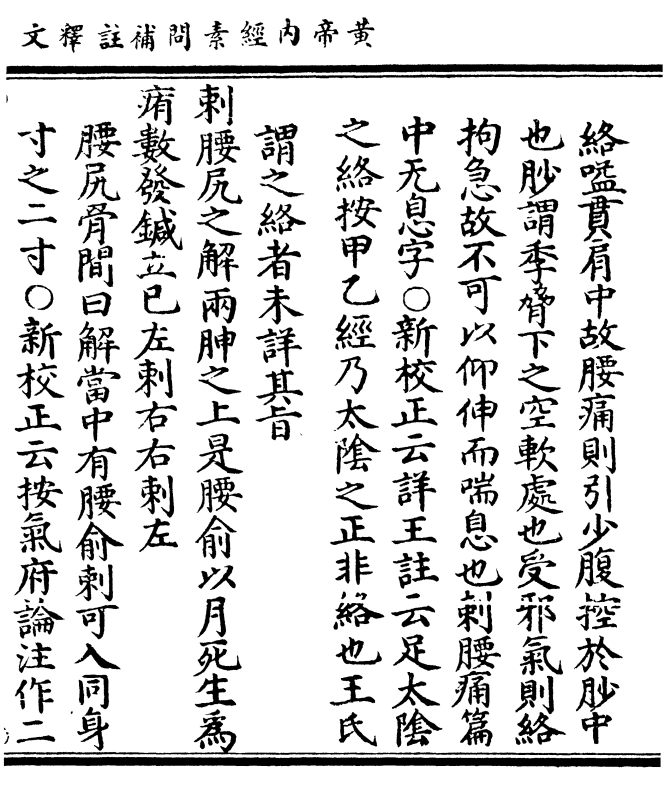 黃帝內經素問補註釋文
絡嗌貫肩中故腰痛則引少腹控於䏚中
也䏚謂季脅下之空軟處也受邪氣則絡
拘急故不可以仰伸而喘息也刺腰痛篇
中无息字○新校正云詳王註云足太陰
之絡按甲乙經乃太陰之正非絡也王氏
謂之絡者未詳其旨
刺腰尻之解兩胂之上是腰俞以月死生爲
痏數發鍼立已左刺右右刺左
腰尻骨間曰解當中有腰俞刺可入同身
寸之二寸○新校正云按氣府論注作二